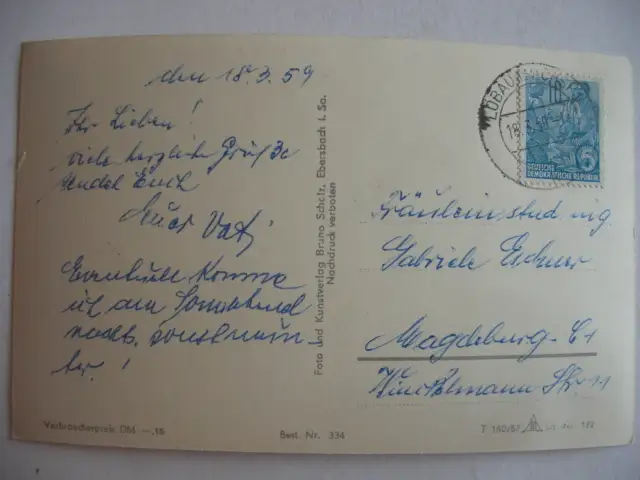 den 18.3.59
Ihr Lieben!
viele herzliche Grüße
sendet Euch
Euer Vati
Eventuell komme
ich am Sonnabend
nachts, sonst
Foto und Kunstverlag Bruno Scholz, Ebersbach i. Sa.
Nachdruck verboten
LÖBAU
10
DEUTSCHE
DEMOKRATISCHE REPUBLIK
Fräulein stud. ing.
Gabriele
Magdeburg-C1
Str. 11
Verbraucherpreis DM —,15
Best. Nr. 334